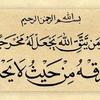 بسم الله الرحمن الرحيم
ومن يتق الله يجعل له مخرجا
يرزقه من حيث لا